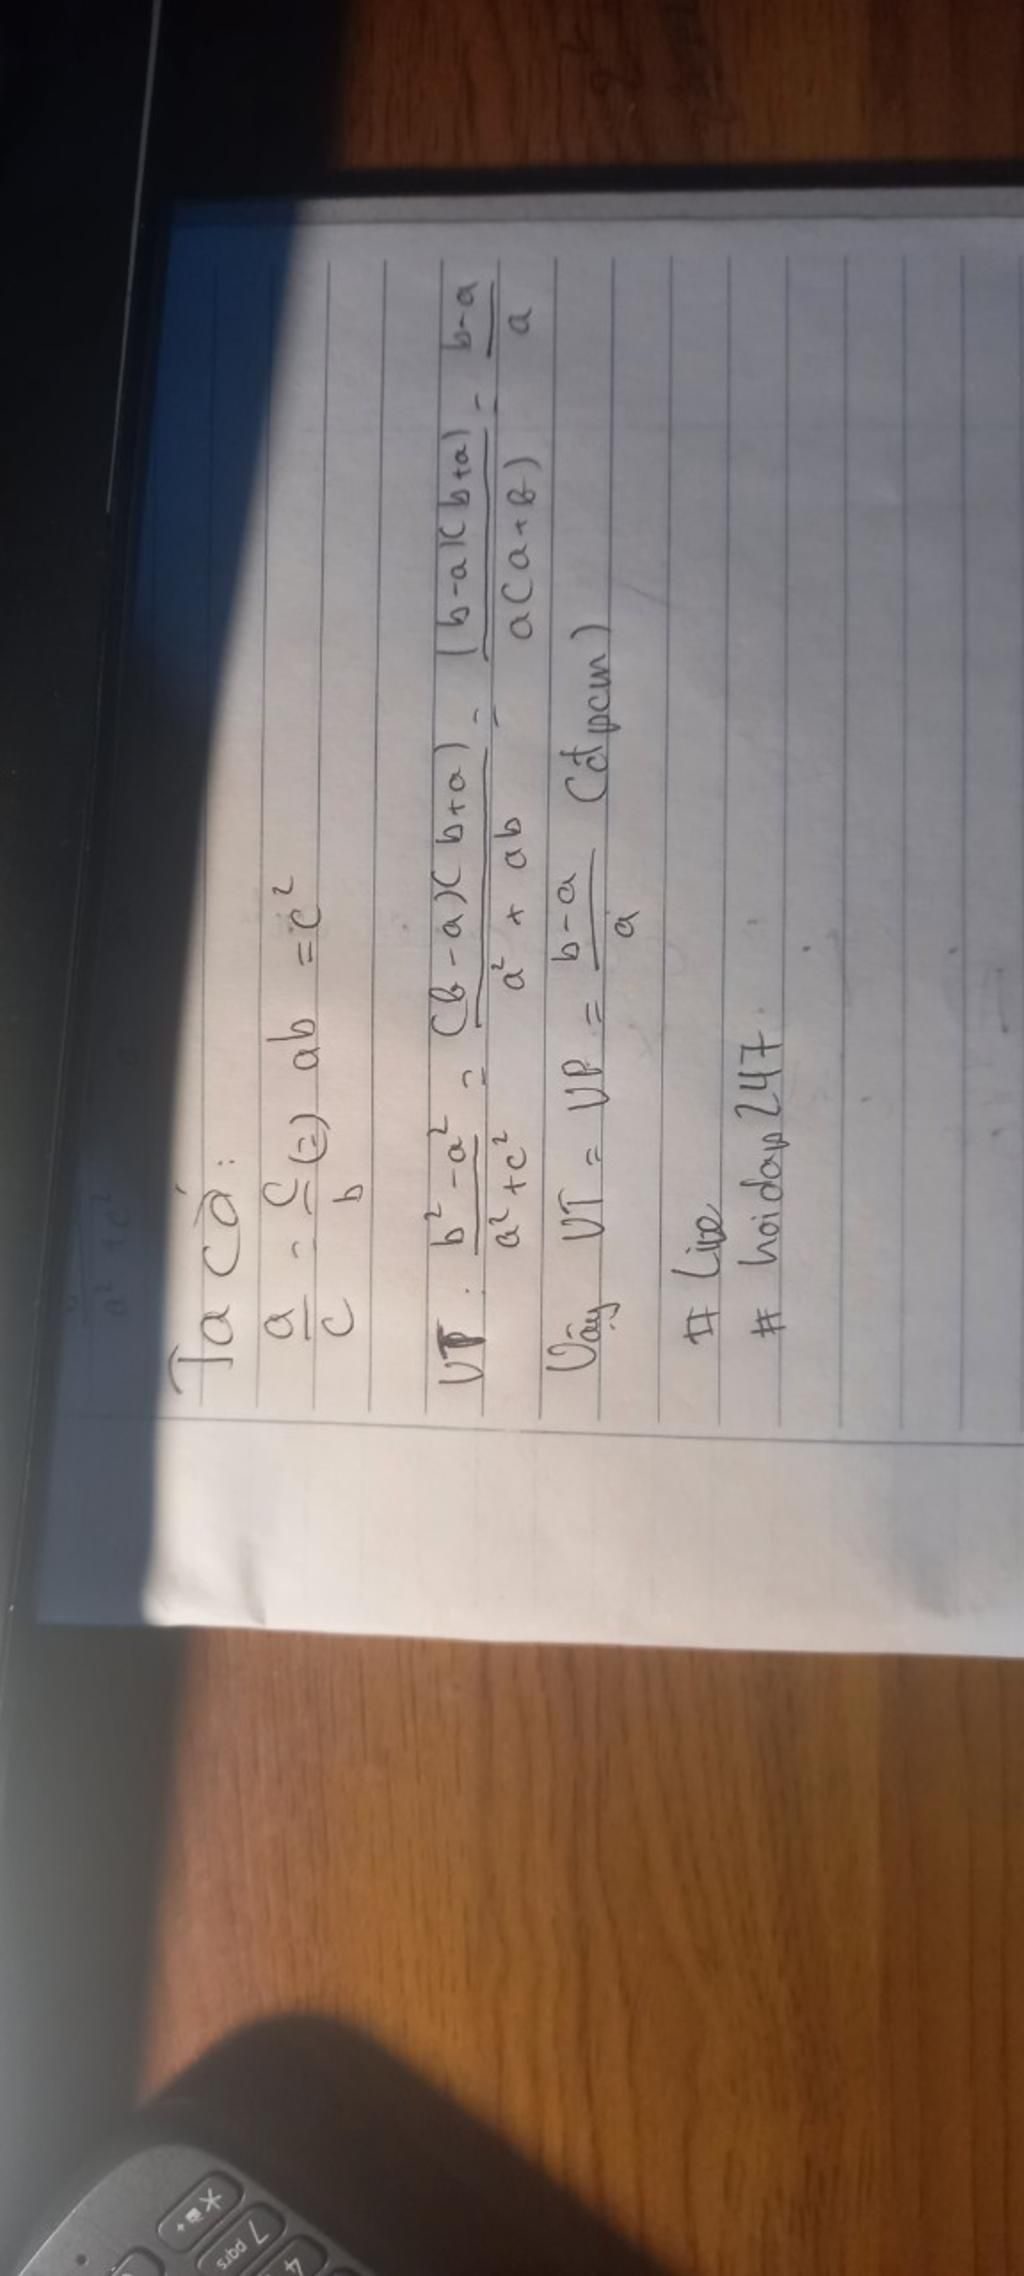 a² + c²
Ta có:
a/c = c/b (=) ab = c²
VT: (b² - a²)/(a² + c²) = ((b - a)(b + a))/(a² + ab) = ((b - a)(b + a))/(a(a + b)) = (b - a)/a
Vậy VT = VP = (b - a)/a (đpcm)
# live
# hoidap247.
*
7 pqrs
4